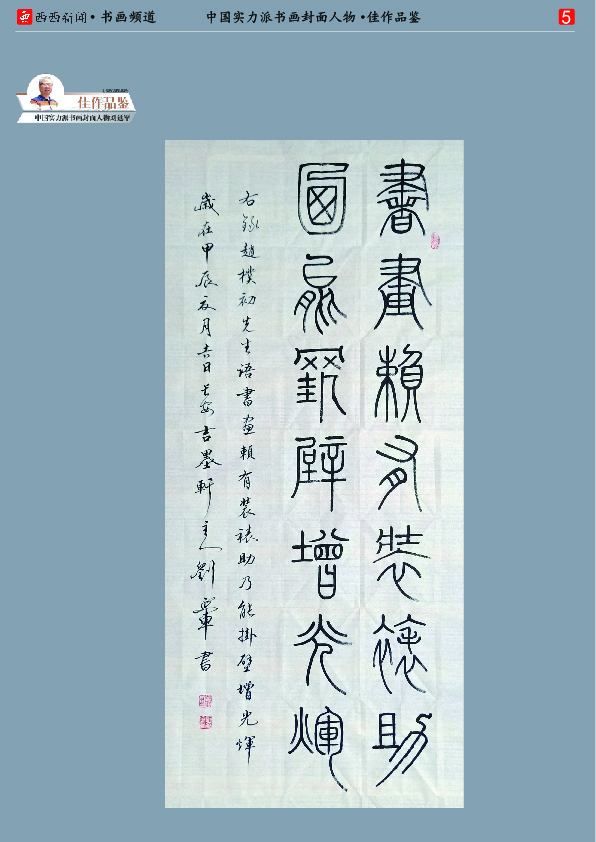 西西新闻·书画频道
中国实力派书画封面人物·佳作品鉴
5
佳作品鉴
中国实力派书画封面人物刘延军
書畫賴有裝裱助
圖能掛壁增光輝
右錄趙樸初先生語書画賴有裝裱助乃能掛壁增光輝
歲在甲辰夏月吉日长安吉墨軒主人劉軍書